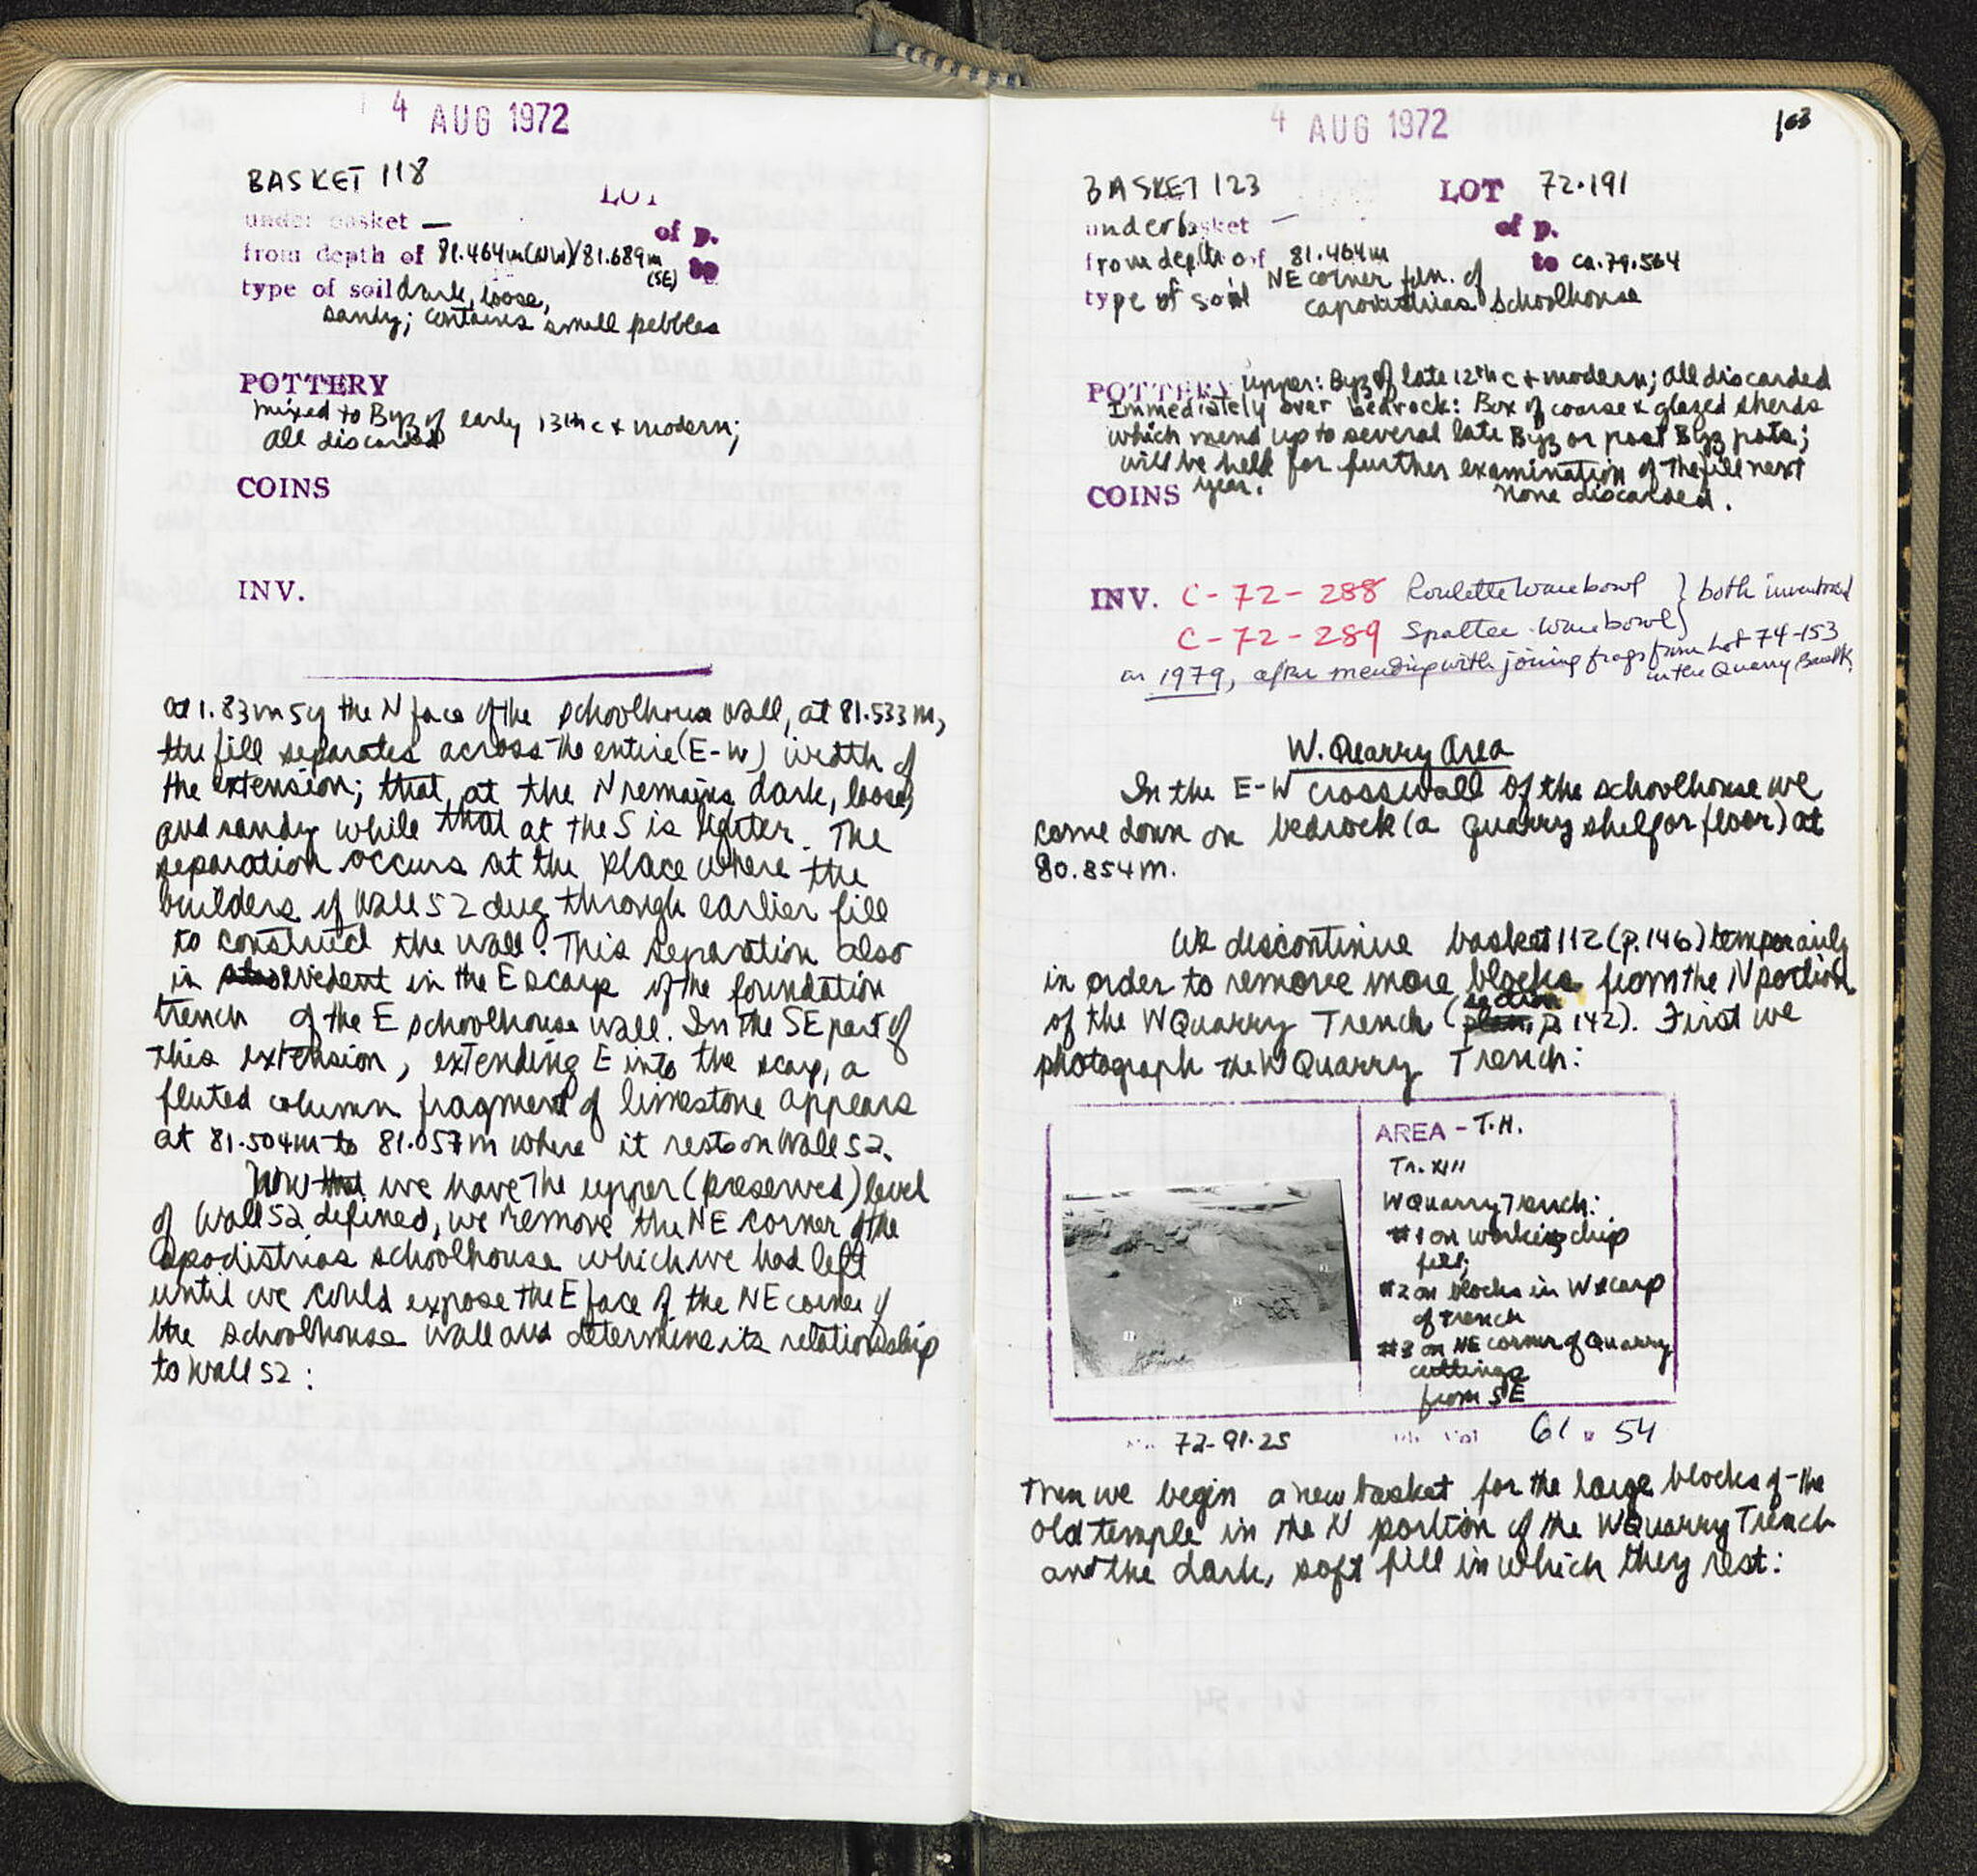 4 AUG 1972
BASKET 118
LOT
under basket —
of p.
from depth of 81.464m(NW)/81.689m (SE) to
type of soil dark, loose,
sandy; contains small pebbles
POTTERY
mixed to Byz of early 13th c + modern;
all discarded
COINS
INV.
at 1.83m S of the N face of the schoolhouse wall, at 81.533m,
the fill separates across the entire (E-W) width of
the extension; that at the N remains dark, loose,
and sandy while that at the S is lighter. The
separation occurs at the place where the
builders of Wall 52 dug through earlier fill
to construct the wall. This separation also
is evident in the E scarp of the foundation
trench of the E schoolhouse wall. In the SE part of
this extension, extending E into the scarp, a
fluted column fragment of limestone appears
at 81.504m to 81.057m where it rests on Wall 52.
Now that we have the upper (preserved) level
of Wall 52 defined, we remove the NE corner of the
Capodistrias schoolhouse which we had left
until we could expose the E face of the NE corner of
the schoolhouse wall and determine its relationship
to Wall 52:
4 AUG 1972
163
BASKET 123
LOT 72.191
under basket —
of p.
from depth of 81.464m
to ca. 79.564
type of soil NE corner fdn. of
Capodistrias Schoolhouse
POTTERY upper: Byz of late 12th c + modern; all discarded
Immediately over bedrock: Box of coarse & glazed sherds
which mend up to several late Byz or post Byz pots;
will be held for further examination of the fill next
year. None discarded.
COINS
INV. C-72-288 Roulette Ware bowl } both inventoried
C-72-289 Spatter Ware bowl }
in 1979, after mending with joining frags from Lot 74-153
in the Quarry Baulk
W. Quarry Area
In the E-W crosswall of the schoolhouse we
come down on bedrock (a quarry shelf or floor) at
80.854m.
We discontinue basket 112 (p. 146) temporarily
in order to remove more blocks from the N portion
of the W Quarry Trench (section p. 142). First we
photograph the W Quarry Trench:
AREA - T.H.
Tr. XIII
W Quarry Trench:
#1 on working chip
fill;
#2 on blocks in W scarp
of trench
#3 on NE corner of Quarry
cuttings
from SE
72-91-25
61 54
Then we begin a new basket for the large blocks of the
old temple in the N portion of the W Quarry Trench
and the dark, soft fill in which they rest: